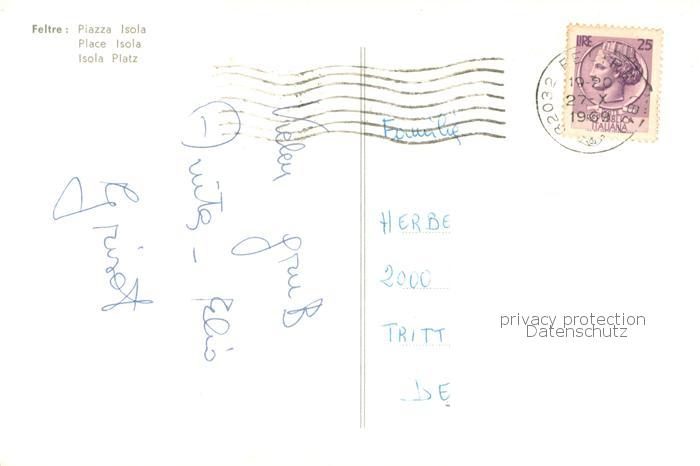 Feltre: Piazza Isola
Place Isola
Isola Platz
LIRE 25
REPUBBLICA
ITALIANA
32032
19-20
27-X
1969
Vielen
gruß
Familie
HERBE
2000
TRITT
DE
privacy protection
Datenschutz